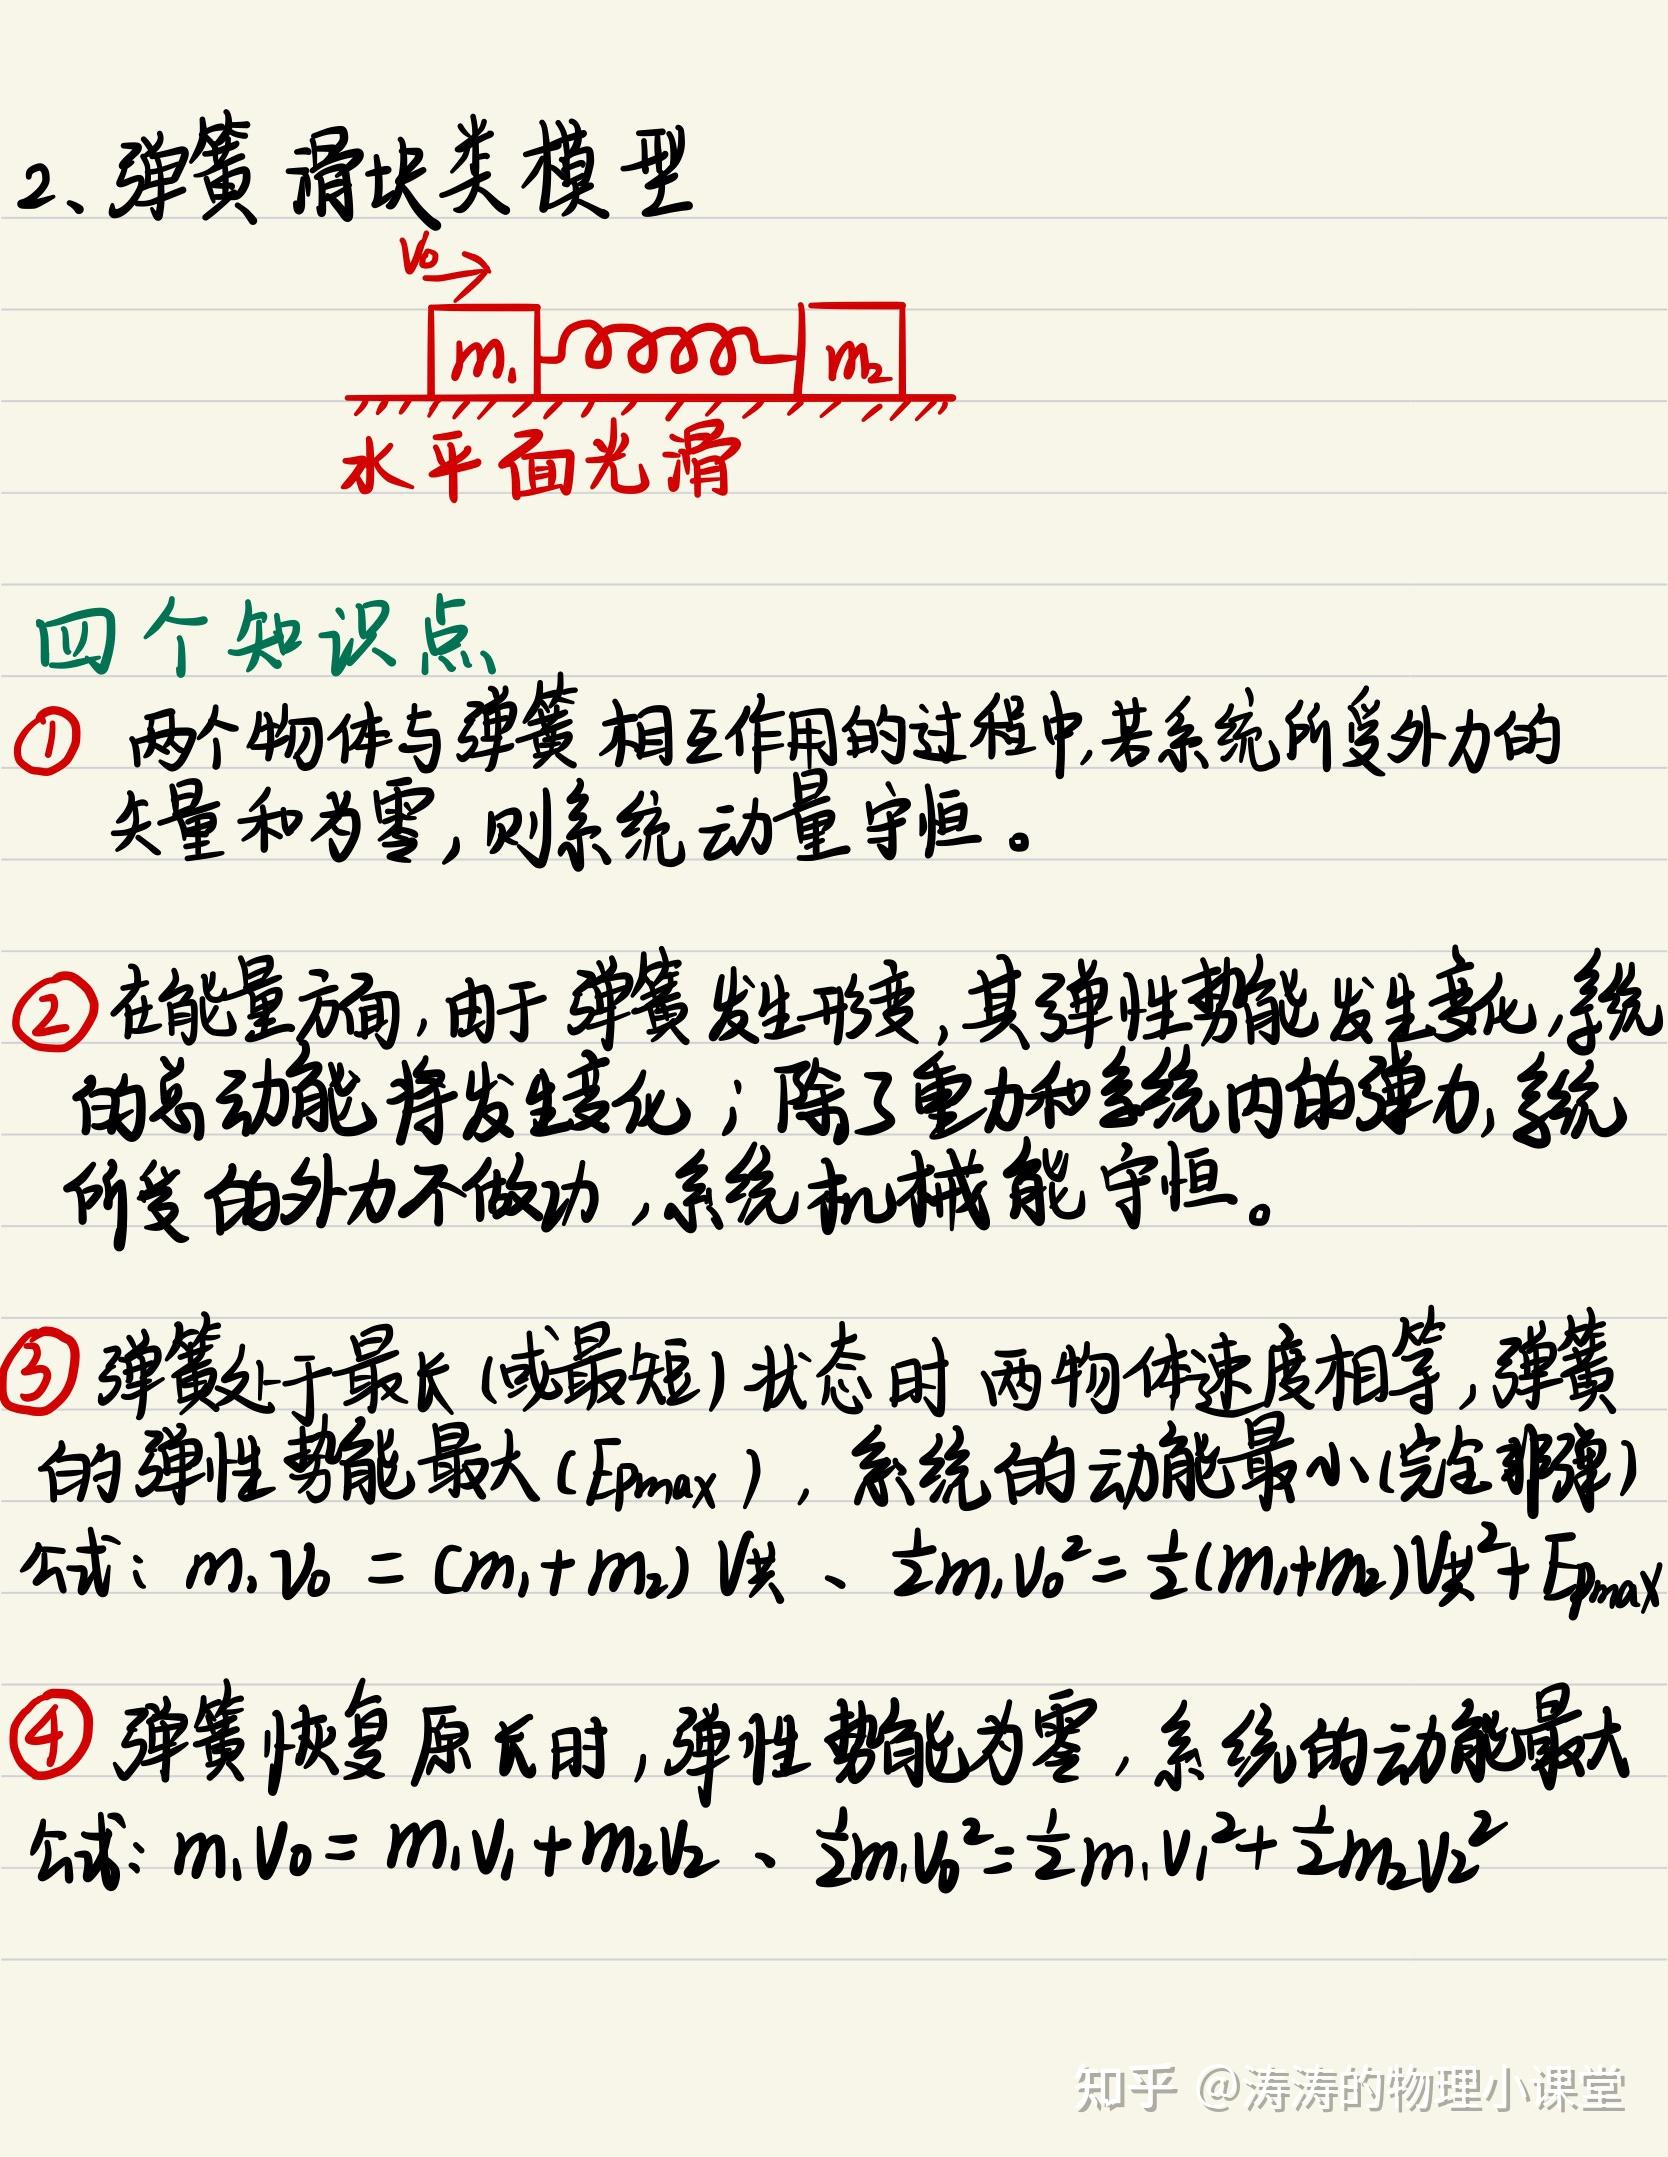 2、弹簧滑块类模型
v₀
m₁ m₂
水平面光滑
四个知识点
① 两个物体与弹簧相互作用的过程中,若系统所受外力的
矢量和为零,则系统动量守恒。
② 在能量方面,由于弹簧发生形变,其弹性势能发生变化,系统
的总动能将发生变化;除了重力和系统内的弹力,系统
所受的外力不做功,系统机械能守恒。
③ 弹簧处于最长(或最短)状态时两物体速度相等,弹簧
的弹性势能最大(Epmax),系统的动能最小(完全非弹)
公式: m₁v₀ = (m₁+m₂)v共 、 ½m₁v₀² = ½(m₁+m₂)v共² + Epmax
④ 弹簧恢复原长时,弹性势能为零,系统的动能最大
公式: m₁v₀ = m₁v₁ + m₂v₂ 、 ½m₁v₀² = ½m₁v₁² + ½m₂v₂²
知乎 @涛涛的物理小课堂